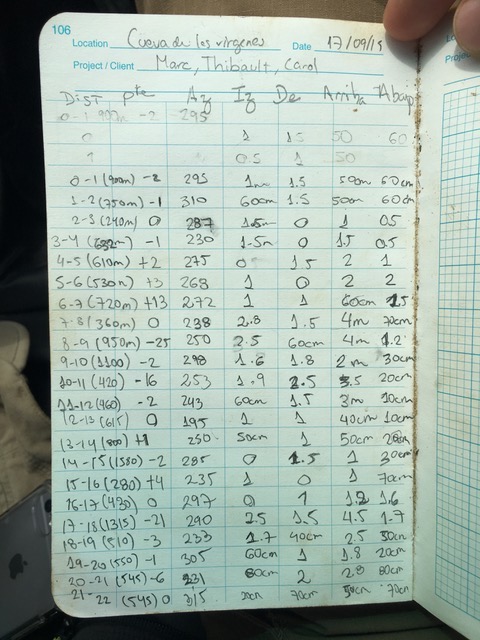 106
Location Cueva de los virgenes Date 17/09/19
Project / Client Marc, Thibault, Carol
DIST pte Az Iz De Arriba Abajo
0-1 900m -2 295
0 1 1.5 50 60
1 0.5 1 50
0-1 (900m) -2 295 1m 1.5 50cm 60cm
1-2 (750m) -1 310 60cm 1.5 50cm 60cm
2-3 (240m) 0 287 1.5m 0 1 0.5
3-4 (632m) -1 230 1.5m 0 1.5 0.5
4-5 (610m) +2 275 0 1.5 2 1
5-6 (530m) +3 268 1 0 2 2
6-7 (720m) +13 272 1 1 60cm 1.5
7-8 (360m) 0 238 2.8 1.5 4m 70cm
8-9 (950m) -25 250 2.5 60cm 4m 1.2
9-10 (1100) -2 298 1.6 1.8 2m 30cm
10-11 (420) -16 253 1.9 2.5 3.5 20cm
11-12 (460) -2 243 60cm 1.5 3m 10cm
12-13 (615) 0 195 1 1 40cm 10cm
13-14 (800) +1 250 50cm 1 50cm 20cm
14-15 (1580) -2 285 0 1.5 1 30cm
15-16 (280) +4 235 1 0 1 70cm
16-17 (430) 0 297 0 1 1.2 1.6
17-18 (1315) -21 290 2.5 1.5 4.5 1.7
18-19 (510) -3 233 1.7 40cm 2.5 50cm
19-20 (550) -1 305 60cm 1 1.8 20cm
20-21 (545) -6 231 80cm 2 2.8 80cm
21-22 (545) 0 315 70cm 50cm 70cm